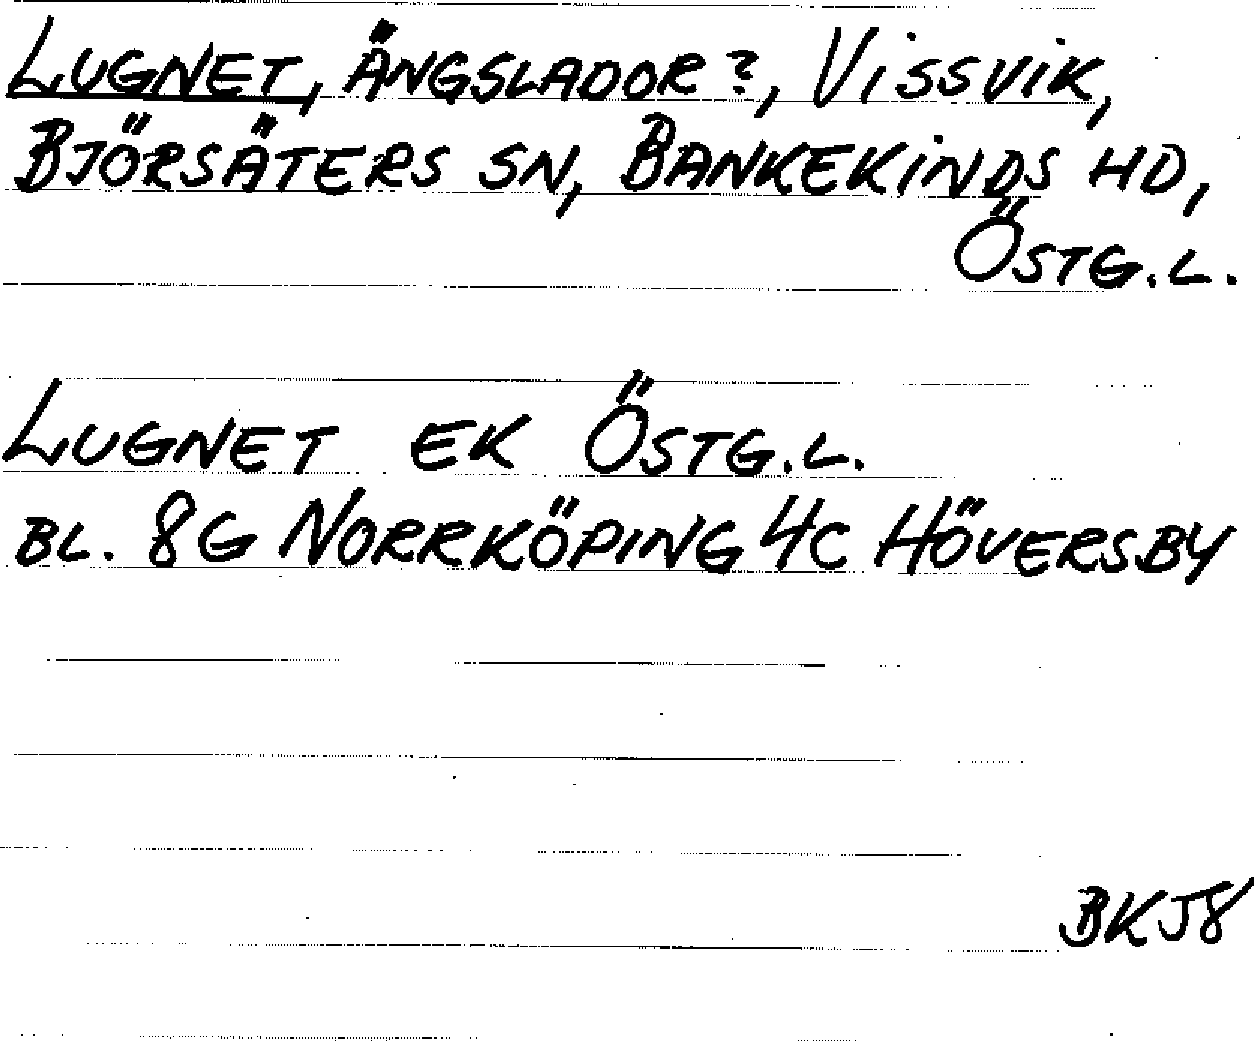 LUGNET, ÄNGSLADOR?, VISSVIK,
BJÖRSÄTERS SN, BANKEKINDS HD,
ÖSTG.L.
LUGNET EK ÖSTG.L.
BL. 8G NORRKÖPING 4C HÖVERSBY
BKJ8